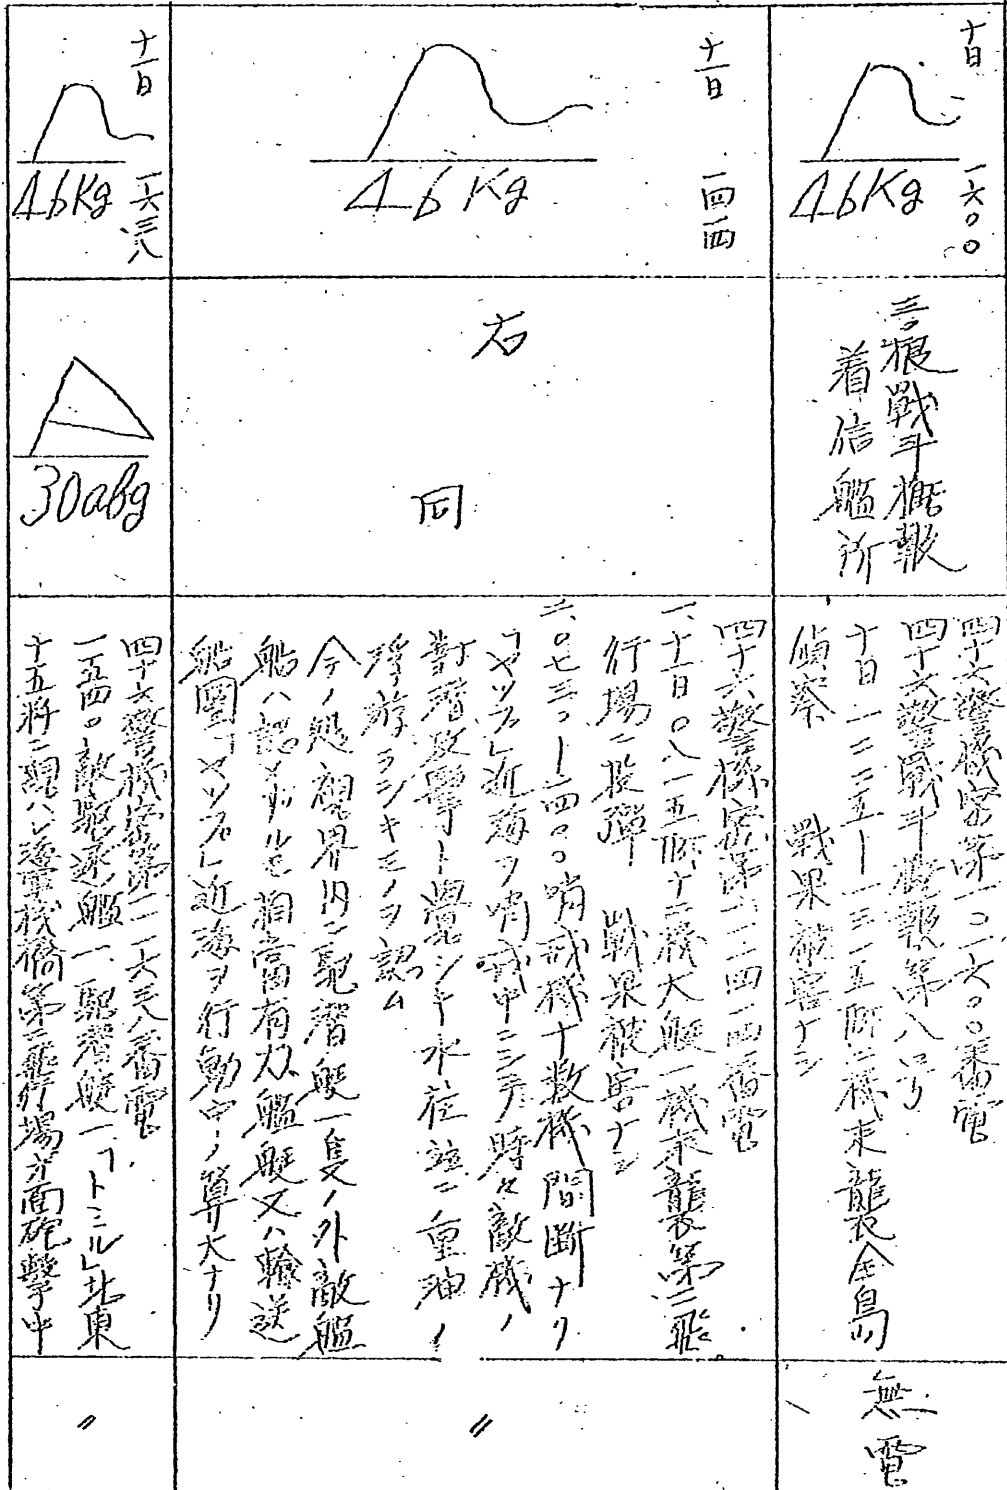 十日
一六〇〇
46Kg
三根戦斗概報
着信艦所
四十六警機密第一〇一六〇〇番電
四十六警戦斗概報第八号
十日 一二二五—一三一五 二機来襲全島
偵察 戦果被害ナシ
無電
十一日
一四一四
46Kg
右
同
四十六警機密第一一一四一四番電
一、十一日〇八一五 十二機大艇一機来襲第二飛
行場ニ投弾 戦果被害ナシ
二、〇七三〇—一四〇〇哨戒機十数機間断ナク
「コマツプレ」近海ヲ哨戒中ニシテ時々敵機ノ
対潜攻撃ト覚シキ水柱並ニ重油ノ
浮游ラシキモノヲ認ム
今ノ処視界内ニ駆潜艇一隻ノ外敵艦
船ハ認メザルモ相当有力艦艇又ハ輸送
船団「コマツプレ」近海ヲ行動中ノ算大ナリ
〃
十一日
一六三八
46Kg
30abg
四十六警機密第一一一六三八番電
一五四〇敵駆逐艦一、駆潜艇一、「トミル」北東
十五粁ニ現ハレ海軍桟橋第二飛行場方面砲撃中
〃